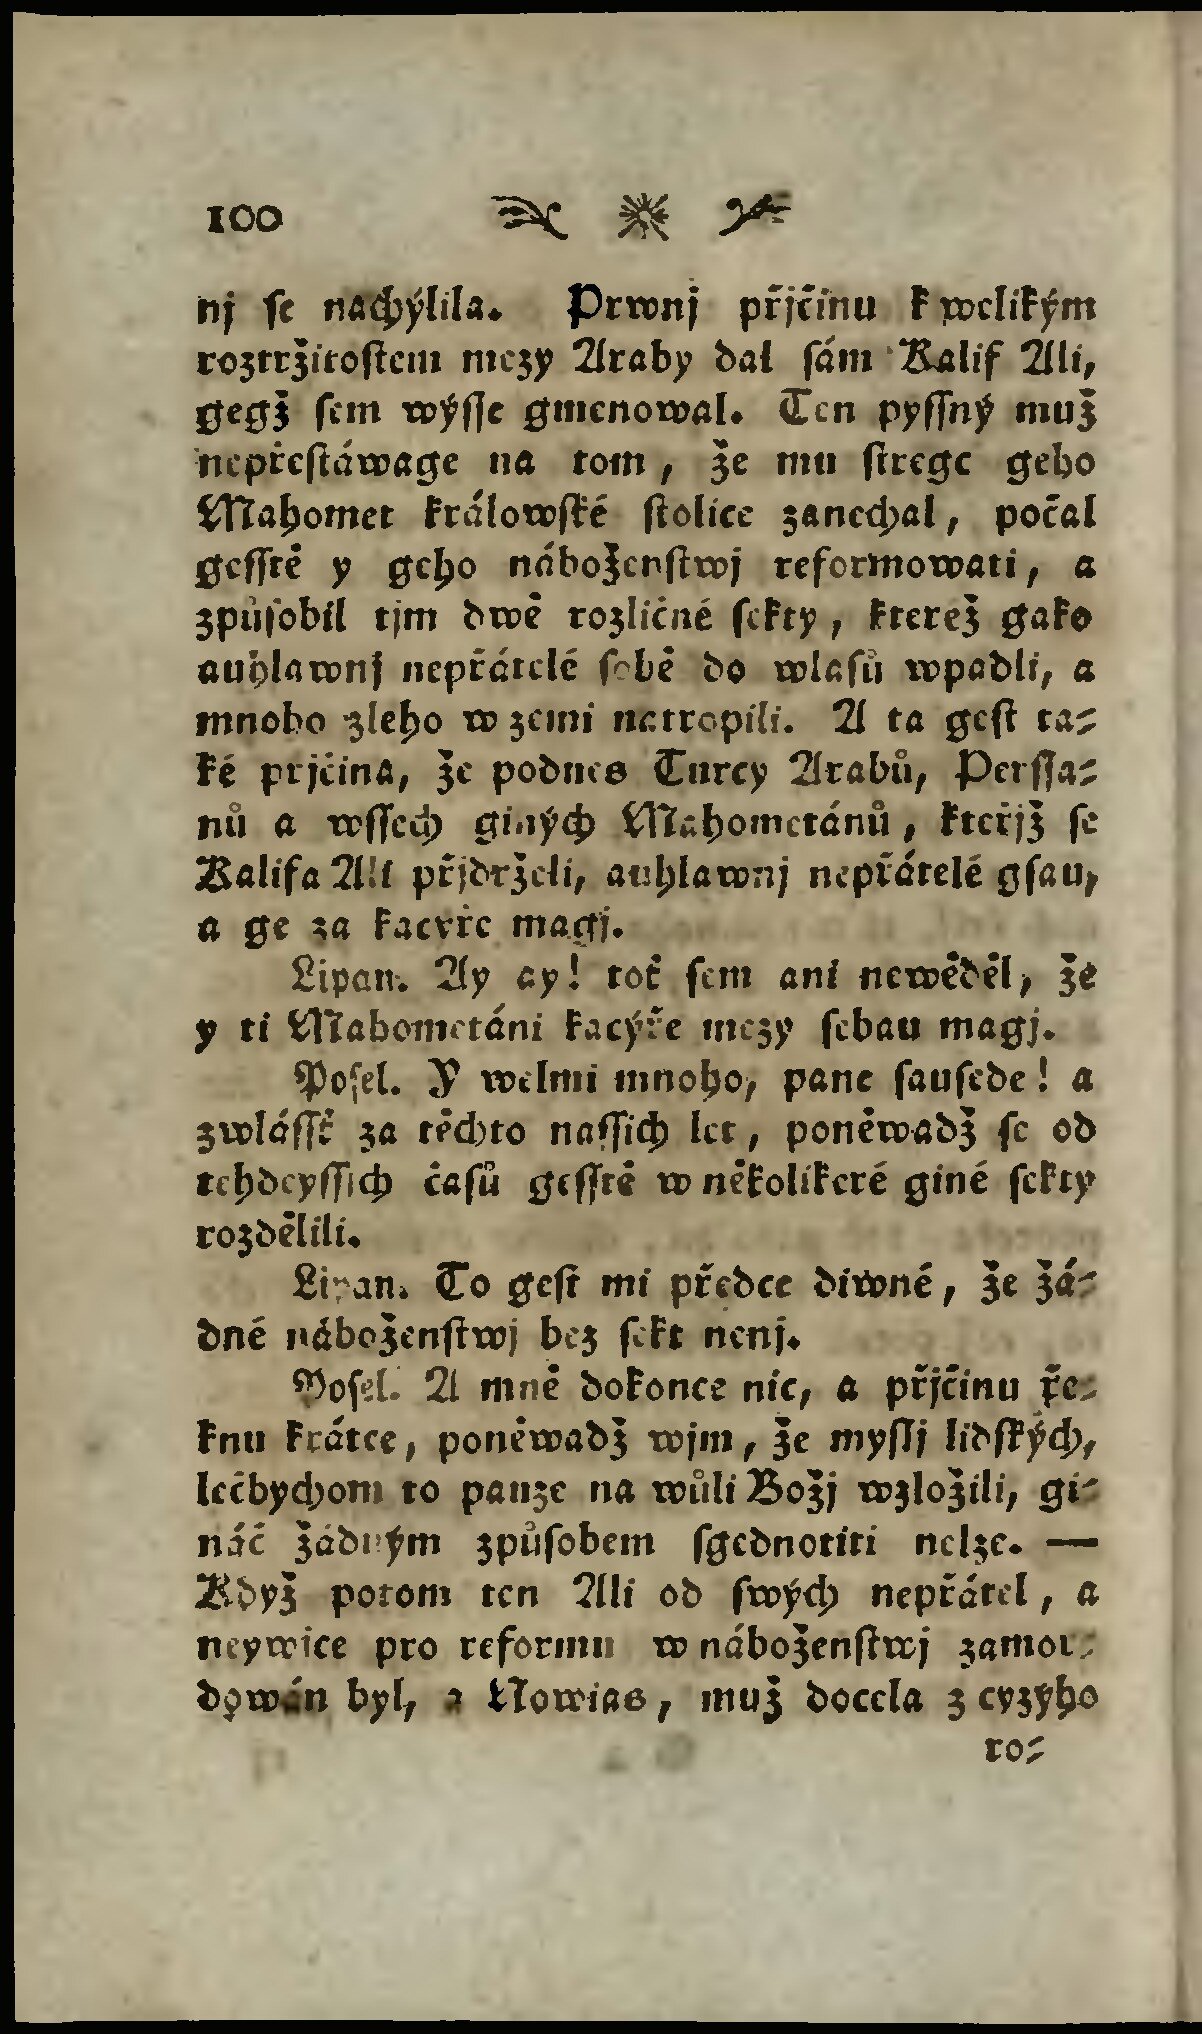 100
nj se nachýlila. Prwnj přjčinu k welikým
roztržitostem mezy Araby dal sám Kalif Ali,
gegž sem wýsse gmenowal. Ten pyssný muž
nepřestáwage na tom, že mu stregc geho
Mahomet králowské stolice zanechal, počal
gesstě y geho náboženstwj reformowati, a
způsobil tjm dwě rozličné sekty, kterež gako
auhlawnj nepřátelé sobě do wlasů wpadli, a
mnoho zleho w zemi natropili. A ta gest ta-
ké prjčina, že podnes Turcy Arabů, Perssa-
nů a wssech giných Mahometánů, kteřjž se
Kalifa Ali přjdrželi, auhlawnj nepřátelé gsau,
a ge za kacyře magj.
Lipan. Ay ay! toť sem ani newěděl, že
y ti Mahometáni kacýře mezy sebau magj.
Posel. Y welmi mnoho, pane sausede! a
zwlásstť za těchto nassich let, poněwadž se od
tehdeyssich časů gesstě w několikeré giné sekty
rozdělili.
Lipan. To gest mi předce diwné, že žá-
dné náboženstwj bez sekt nenj.
Posel. A mně dokonce nic, a přjčinu ře-
knu krátce, poněwadž wjm, že myslj lidských,
lečbychom to pauze na wůli Božj wzložili, gi-
náč žádným způsobem sgednotiti nelze. —
Když potom ten Ali od swých nepřátel, a
neywice pro reformu w náboženstwj zamor-
dowán byl, a Nowias, muž docela z cyzýho
ro-